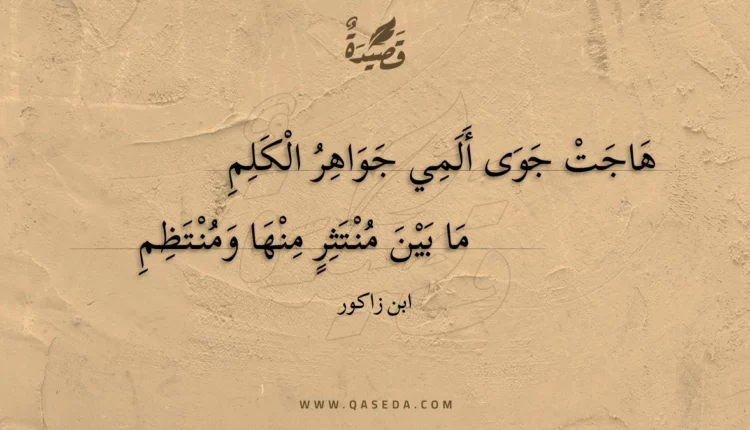 قَصِيْدَةٌ
هَاجَتْ جَوَى أَلَمِي جَوَاهِرُ الْكَلِمِ
مَا بَيْنَ مُنْتَثِرٍ مِنْهَا وَمُنْتَظِمِ
ابن زاكور
WWW.QASEDA.COM